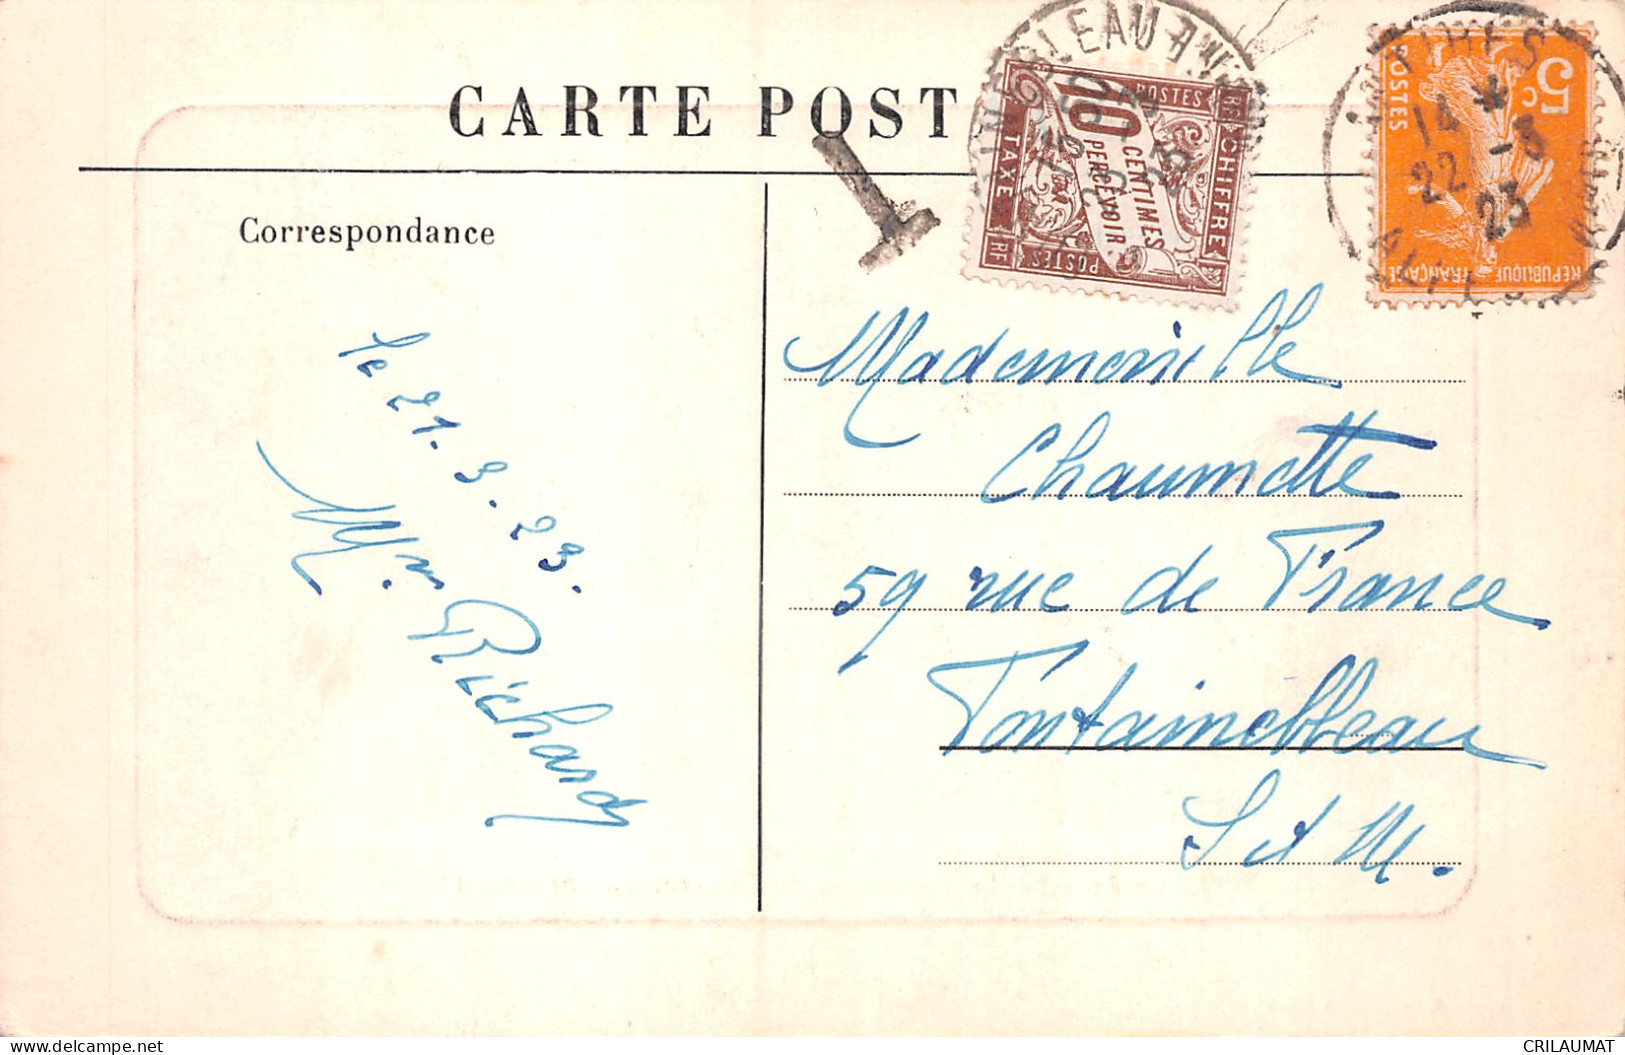 CARTE POST
Correspondance
le 21.3.23.
Mme Richard
Mademoiselle
Chaumette
59 rue de France
Fontainebleau
S et M.
POSTES
10
CENTIMES
PERCEVOIR
CHIFFRE
TAXE
POSTES
RF
5c
POSTES
REPUBLIQUE FRANÇAISE
ANTIBES
14 *
22 -3
23
T
delcampe.net
CRILAUMAT